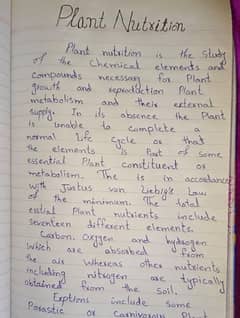 Plant Nutrition
Plant nutrition is the Study
of the Chemical elements and
Compounds necessary for Plant
growth and reproduction Plant
metabolism and their external
Supply. In its absence the Plant
is unable to complete a
normal Life Cycle or that
the elements is Part of Some
essential Plant constituent or
metabolism. The is in accordance
with Justus von Liebig's Law
of the minimum. The total
essitial Plant nutrients include
seventeen different elements.
Carbon, oxygen and hydrogen
which are absorbed from
the air whereas other nutrients
including nitrogen are typically
obtained from the soil.
Exptions include some
Parasitic or Carnivorous